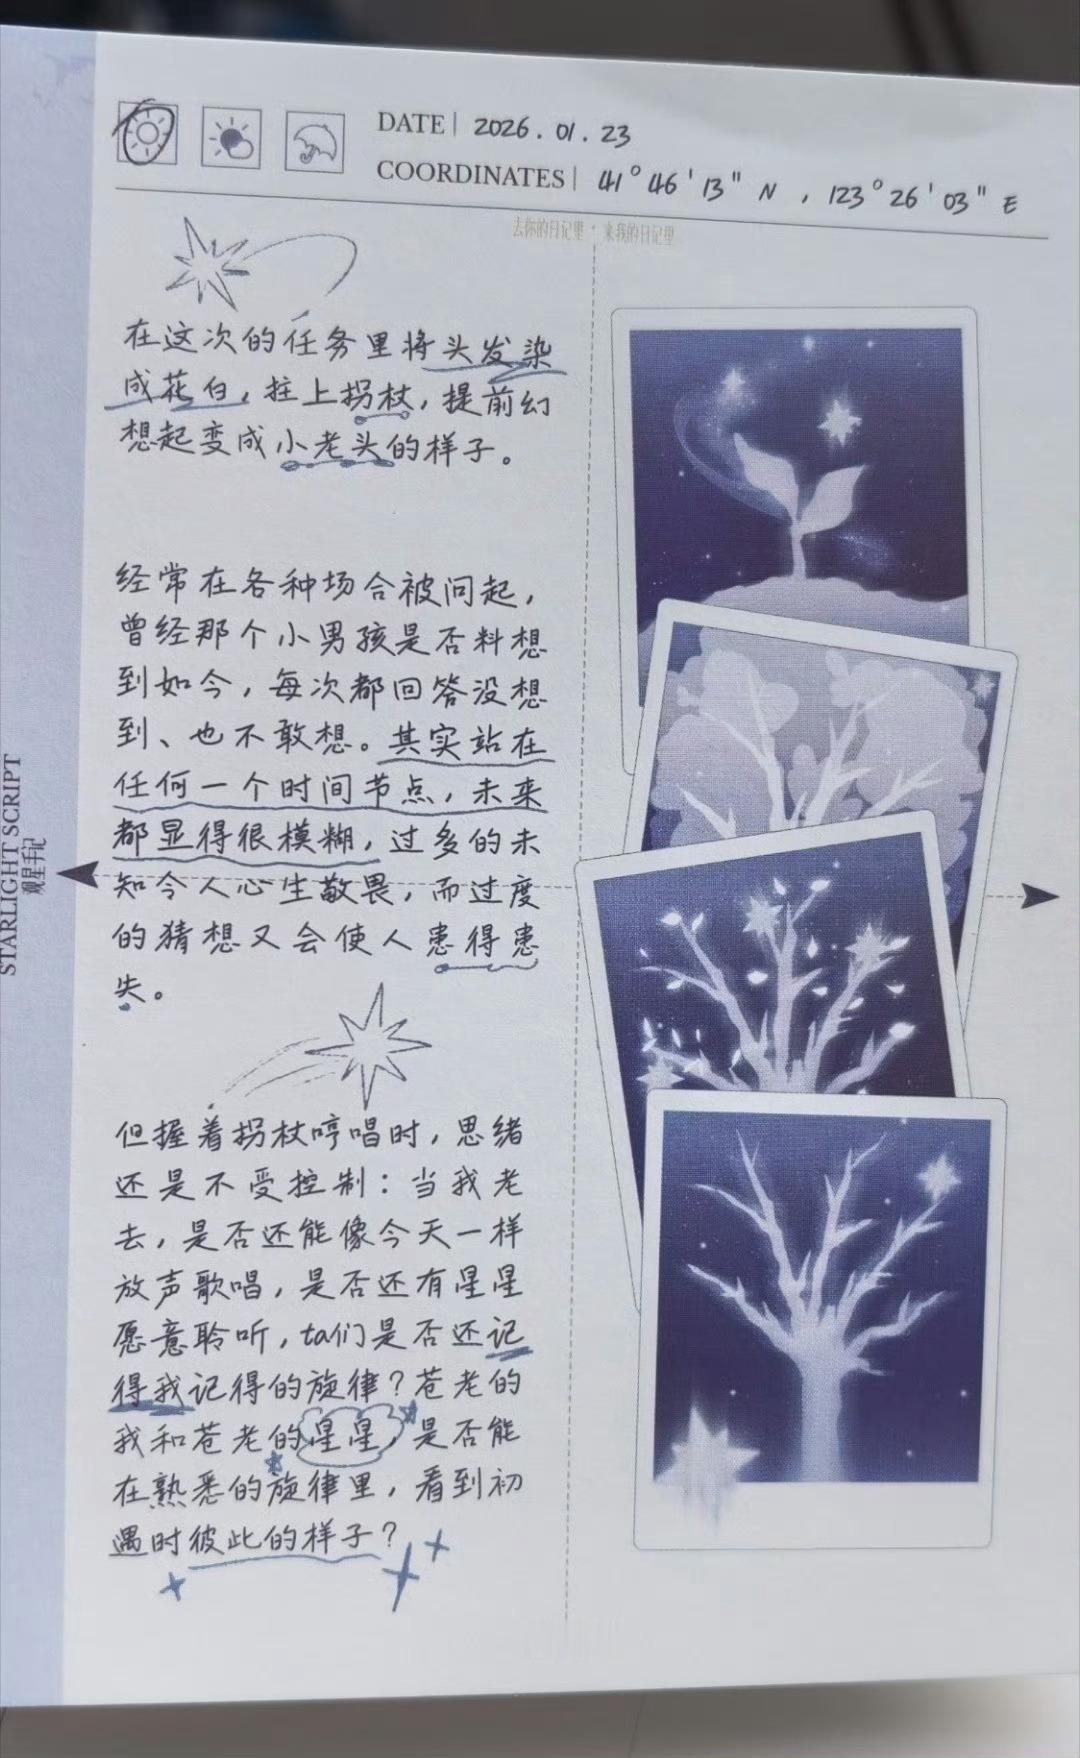 DATE | 2026.01.23
COORDINATES | 41°46'13" N , 123°26'03" E
去你的日记里·来我的日记里
在这次的任务里将头发染
成花白，拄上拐杖，提前幻
想起变成小老头的样子。
经常在各种场合被问起，
曾经那个小男孩是否料想
到如今，每次都回答没想
到、也不敢想。其实站在
任何一个时间节点，未来
都显得很模糊，过多的未
知令人心生敬畏，而过度
的猜想又会使人患得患
失。
但握着拐杖哼唱时，思绪
还是不受控制：当我老
去，是否还能像今天一样
放声歌唱，是否还有星星
愿意聆听，ta们是否还记
得我记得的旋律？苍老的
我和苍老的星星，是否能
在熟悉的旋律里，看到初
遇时彼此的样子？
STARLIGHT SCRIPT
观星手记